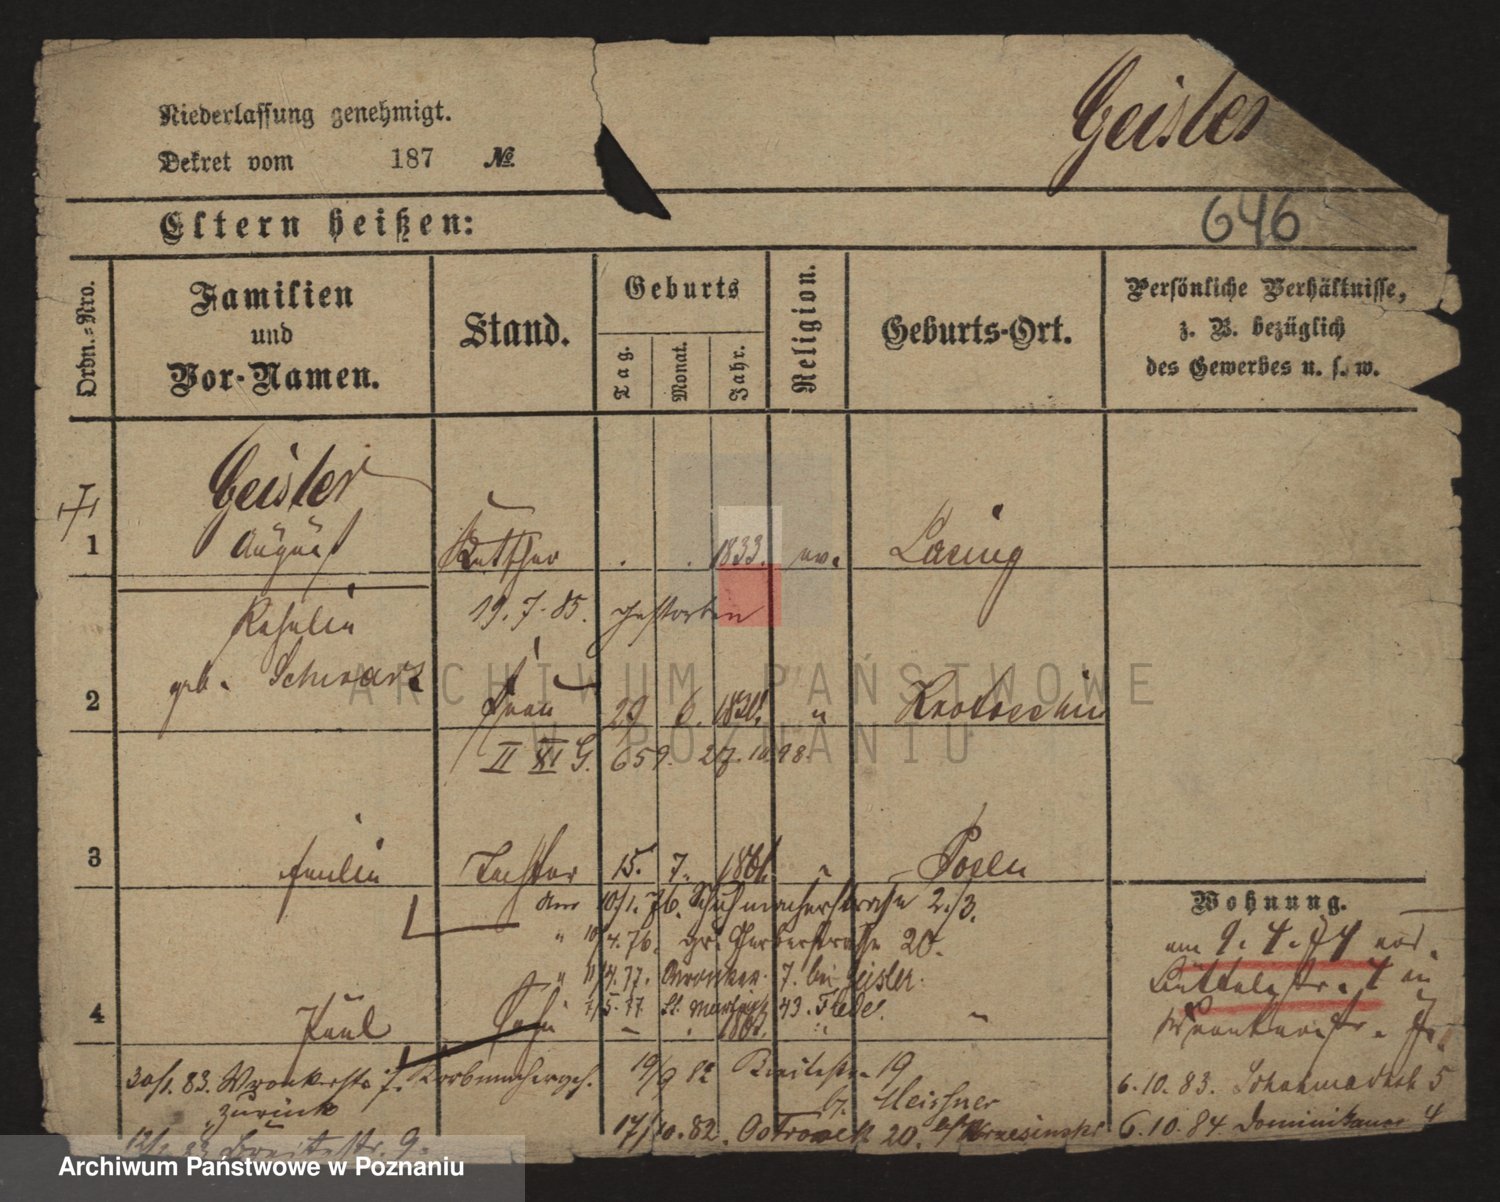 Geisler
Niederlassung genehmigt.
Dekret vom 187 No.
646
Eltern heißen:
Ordn.=Nro.
Familien und Vor-Namen.
Stand.
Geburts
Tag.
Monat.
Jahr.
Religion.
Geburts-Ort.
Persönliche Verhältnisse,
z. B. bezüglich
des Gewerbes u. s. w.
Geisler
1 August Kutscher 1833. ev.
19. 7. 85. gestorben
geb. Schwarz
2 Frau 29 6. " Krotoschin
II XI G. 659. 27. 10. 98.
3 Tochter 15. 7. " Posen
Wohnung.
am 10/1. 76. Schuhmacherstrasse 2/3.
" 10/4. 76. gr. Gerberstrasse 20.
" 11/4. 77. Wronker. 7. bei Geisler.
am 9. 4. 74
4 Paul Sohn "
30/1. 83. Wronkerstr. 7. Korbmacherges. 19/9 82 Breitestr. 19
zurück
b. Meissner
6. 10. 83. 5
17/10. 82. 20. 6. 10. 84. Dominikaner 4
Breitestr. 9.
ARCHIWUM PAŃSTWOWE
W POZNANIU
Archiwum Państwowe w Poznaniu